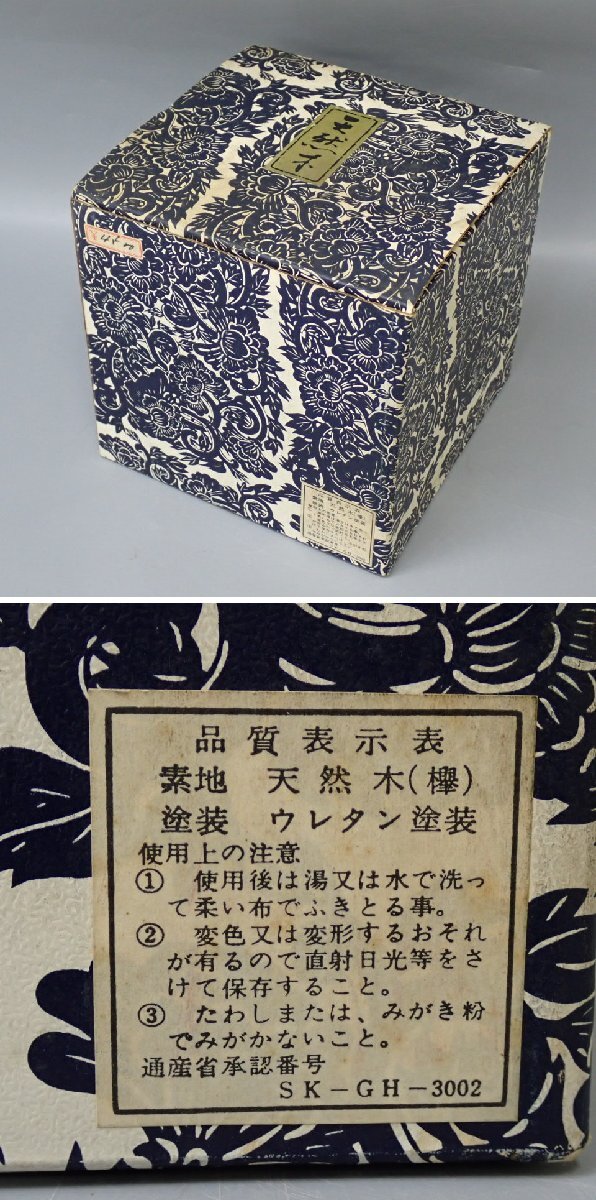 天然木
品質表示表
素地 天然木(欅)
塗装 ウレタン塗装
使用上の注意
① 使用後は湯又は水で洗っ
て柔い布でふきとる事。
② 変色又は変形するおそれ
が有るので直射日光等をさ
けて保存すること。
③ たわしまたは、みがき粉
でみがかないこと。
通産省承認番号
SK-GH-3002